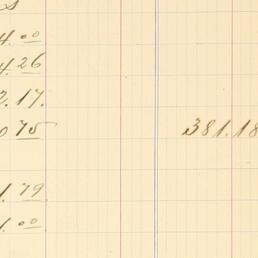 s
4.00
4.26
2.17.
0 75 381.18
1.79
1.00